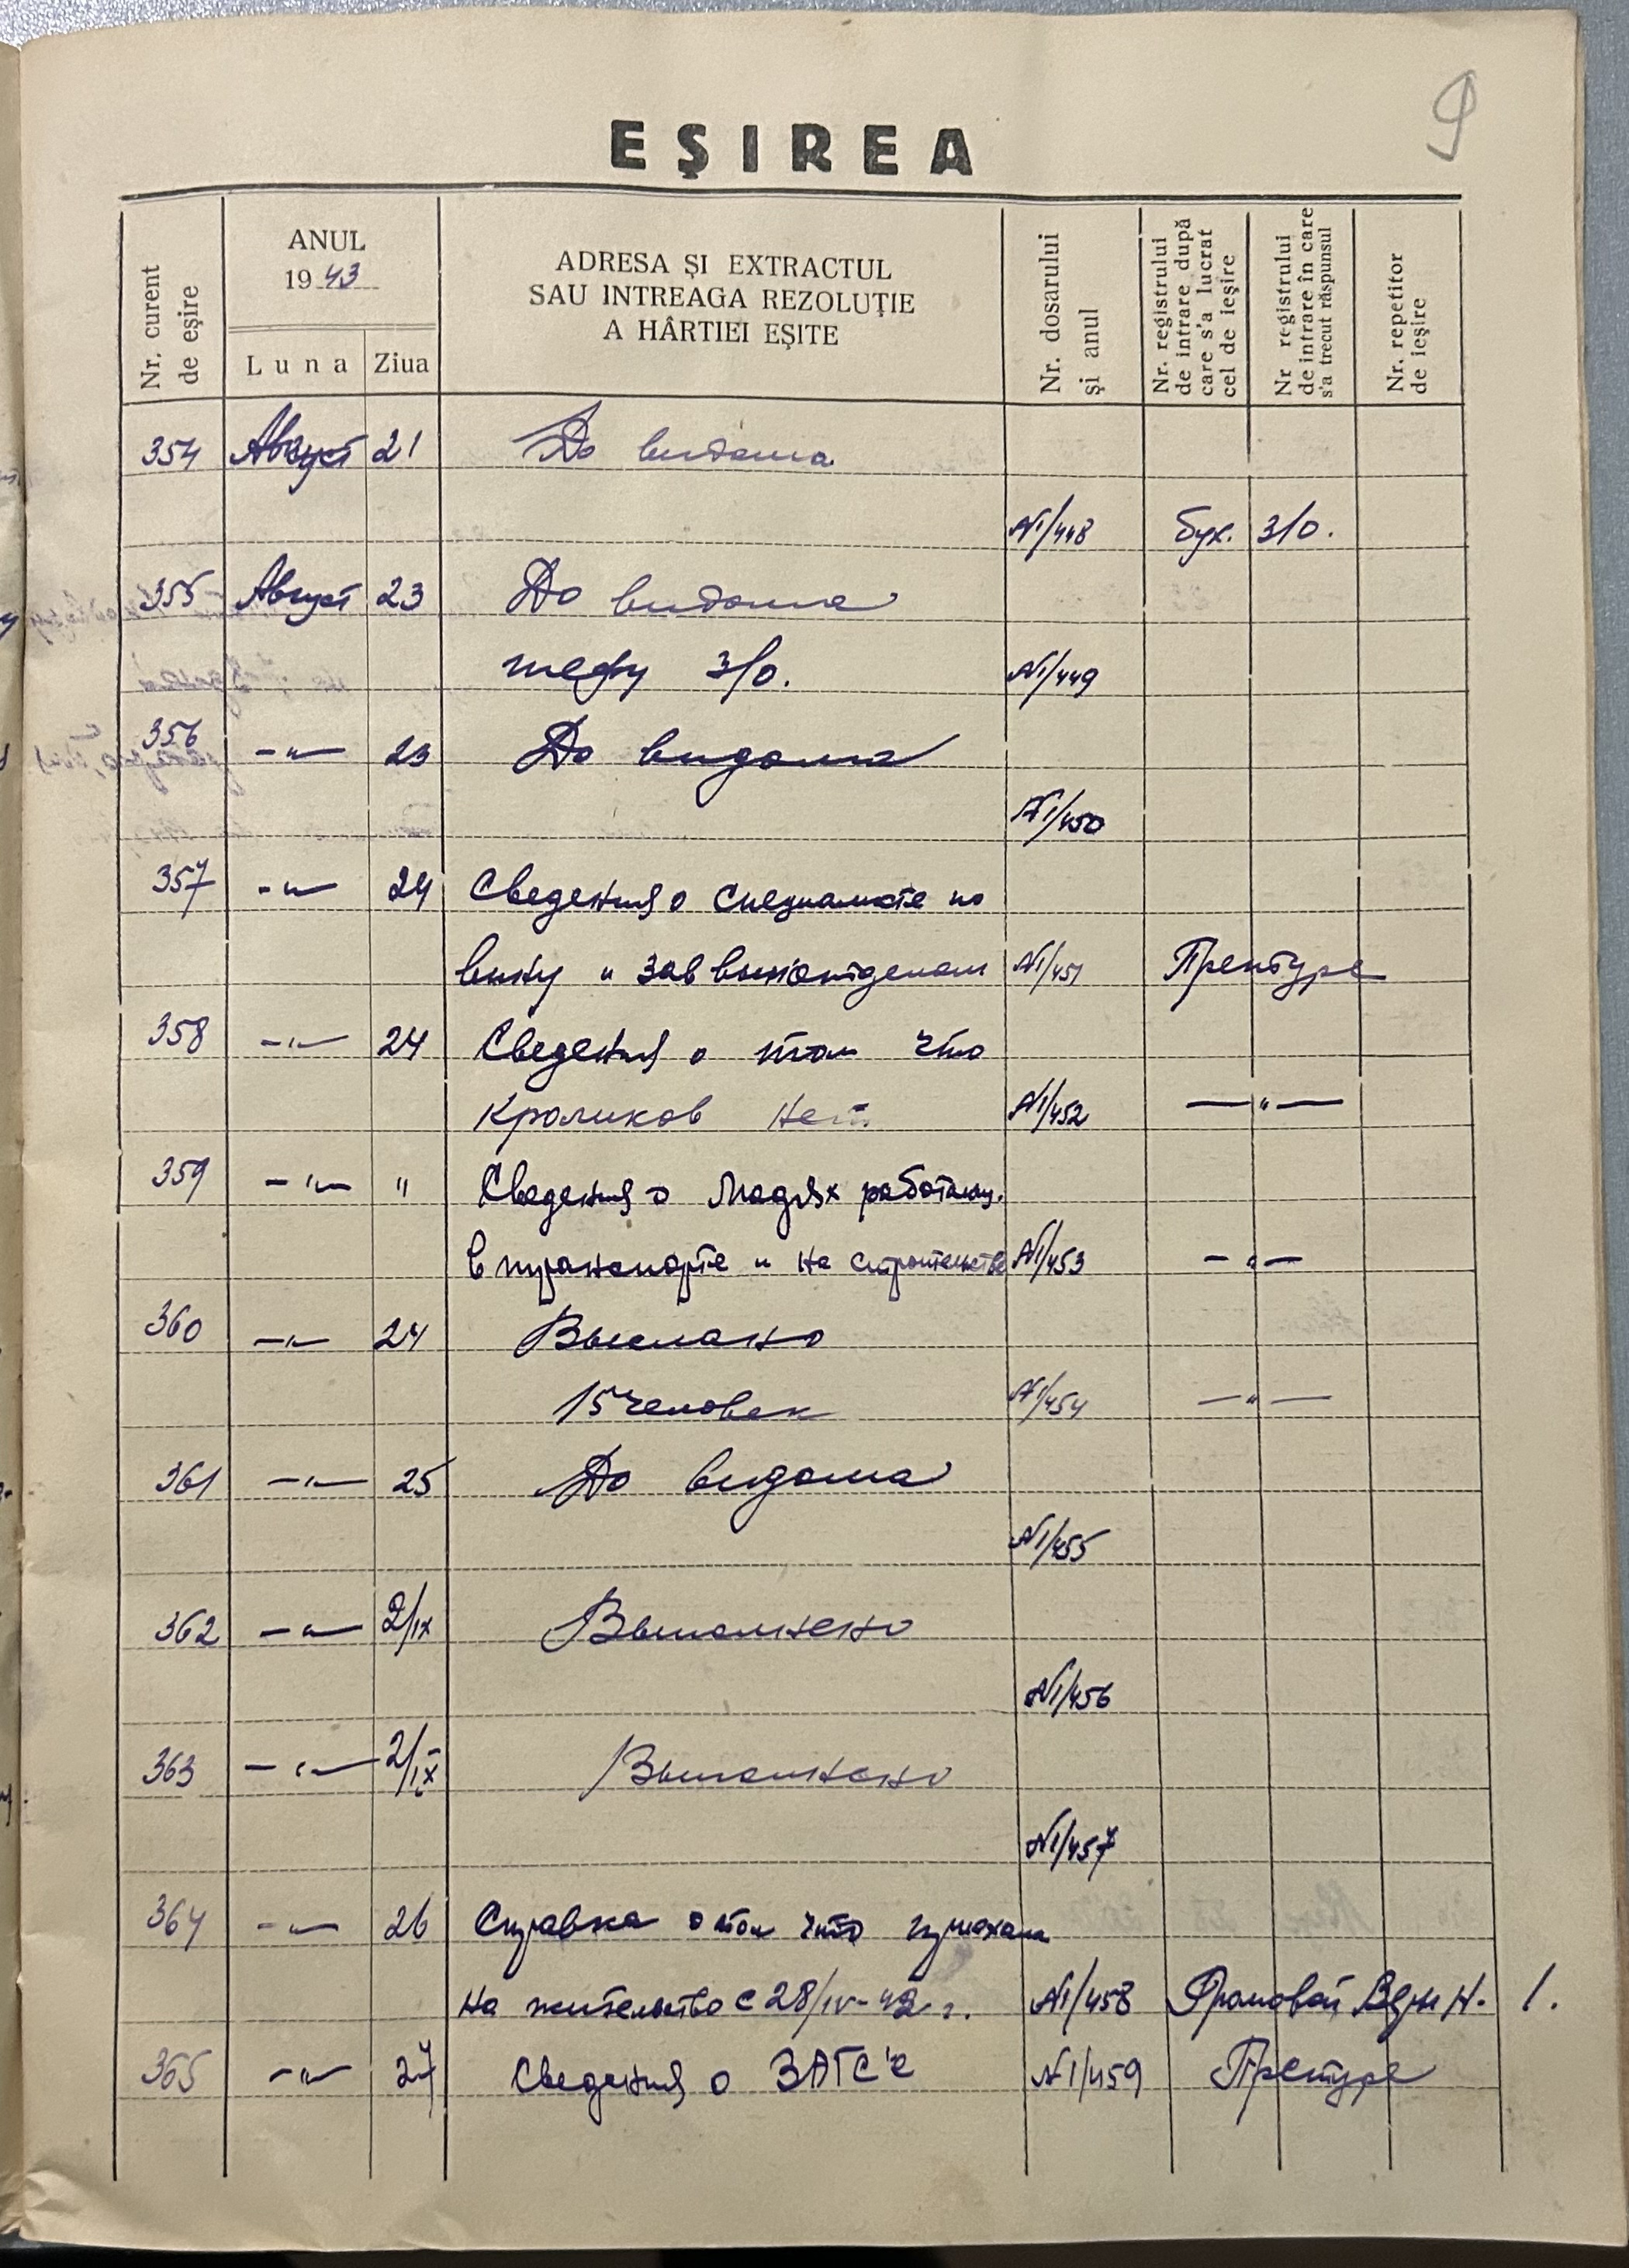 9
EŞIREA
Nr. curent de eşire
ANUL
1943
Luna
Ziua
ADRESA ŞI EXTRACTUL
SAU INTREAGA REZOLUŢIE
A HÂRTIEI EŞITE
Nr. dosarului şi anul
Nr. registrului de intrare după care s'a lucrat cel de ieşire
Nr registrului de intrare în care s'a trecut răspunsul
Nr. repetitor de ieşire
354 Август 21 До видома
№1/448 Бух. З/О.
355 Август 23 До видома
шефу З/О. №1/449
356 -"- 23 До видома
№1/450
357 -"- 24 Сведения о специалисте по
вину и зав №1/451 Претуре
358 -"- 24 Сведения о том что
кроликов нет №1/452 -"-
359 -"- " Сведения о людях работающ.
в транспорте и на строительстве №1/453 -"-
360 -"- 24 Выслано
15 человек №1/454 -"-
361 -"- 25 До видома
№1/455
362 -"- 2/IX Выполнено
№1/456
363 -"- 2/IX Выполнено
№1/457
364 -"- 26 Справка о том что приехал
на жительство с 28/IV-42 г. №1/458 1.
365 -"- 27 Сведения о ЗАГС'е №1/459 Претуре